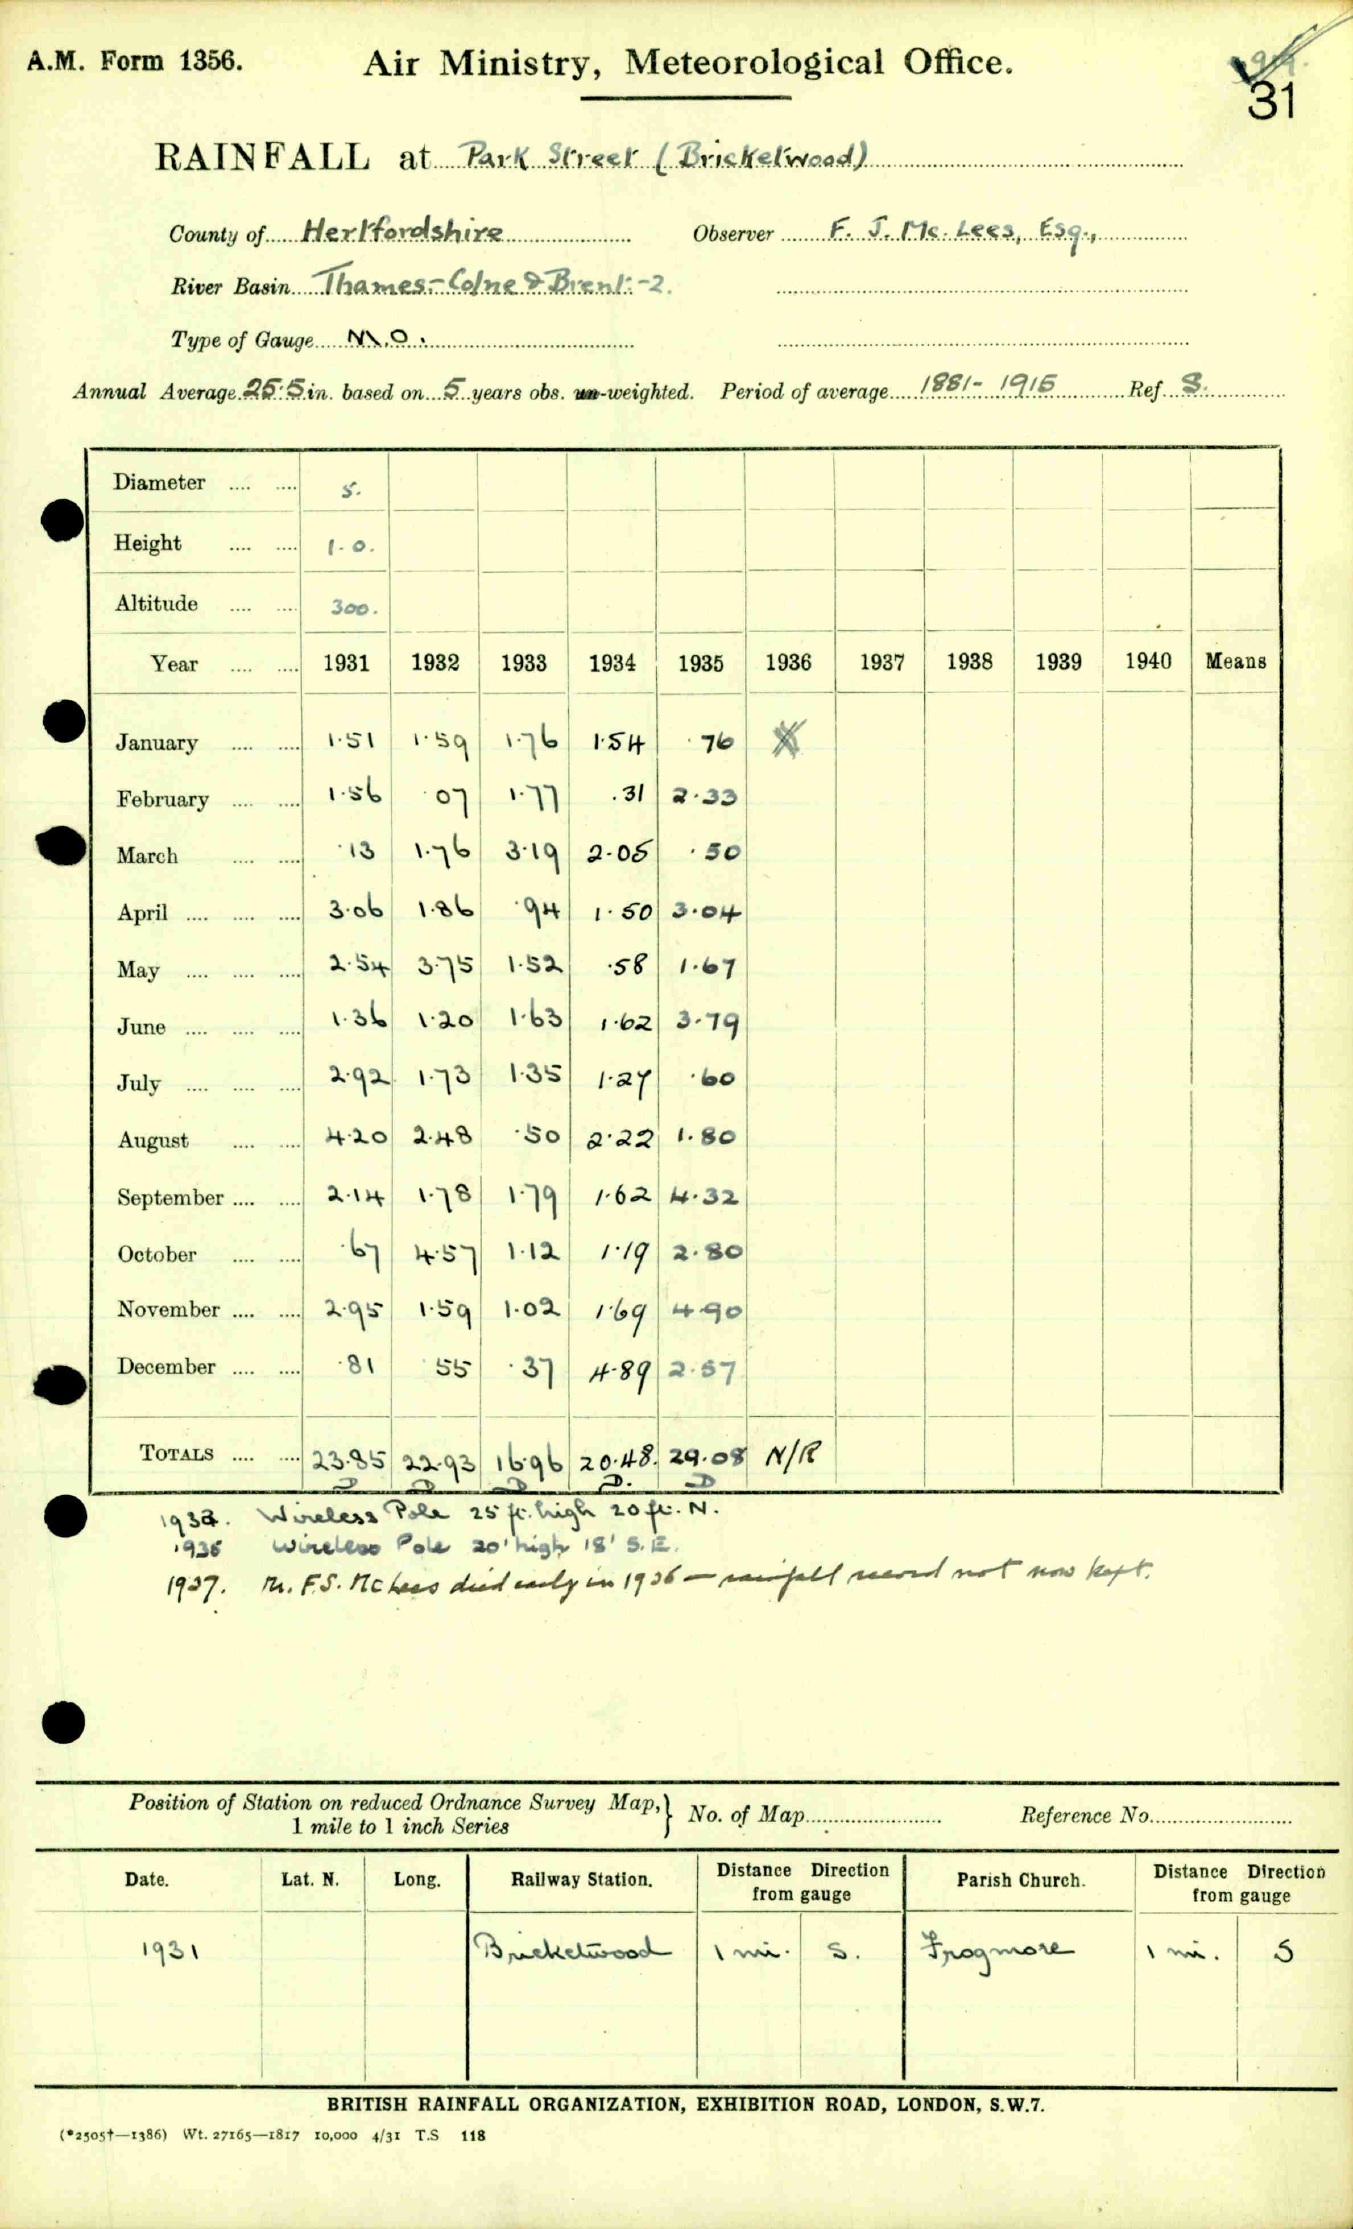 A.M. Form 1356.
Air Ministry, Meteorological Office.
31
RAINFALL at Park Street (Bricketwood)
County of Hertfordshire Observer F. J. Mc. Lees, Esq.,
River Basin Thames-Colne & Brent-2.
Type of Gauge M.O.
Annual Average 25.5 in. based on 5 years obs. un-weighted. Period of average 1881-1915 Ref. S.
Diameter .... .... 5.
Height .... .... 1.0.
Altitude .... .... 300.
Year .... .... 1931 1932 1933 1934 1935 1936 1937 1938 1939 1940 Means
January .... .... 1.51 1.59 1.76 1.54 .76 X
February .... .... 1.56 .07 1.77 .31 2.33
March .... .... .13 1.76 3.19 2.05 .50
April .... .... .... 3.06 1.86 .94 1.50 3.04
May .... .... .... 2.54 3.75 1.52 .58 1.67
June .... .... .... 1.36 1.20 1.63 1.62 3.79
July .... .... .... 2.92 1.73 1.35 1.27 .60
August .... .... 4.20 2.48 .50 2.22 1.80
September .... .... 2.14 1.78 1.79 1.62 4.32
October .... .... .67 4.57 1.12 1.19 2.80
November .... .... 2.95 1.59 1.02 1.69 4.90
December .... .... .81 .55 .37 4.89 2.57
TOTALS .... .... 23.85 22.93 16.96 20.48. 29.08 N/R
D D D D. D
Wireless Pole 25 ft. high 20 ft. N.
1935 Wireless Pole 20' high 18' S.E.
1937. Mr. F.S. McLees died early in 1936 — rainfall record not now kept.
Position of Station on reduced Ordnance Survey Map, 1 mile to 1 inch Series } No. of Map Reference No.
Date. Lat. N. Long. Railway Station. Distance Direction from gauge Parish Church. Distance Direction from gauge
1931 Bricketwood 1 mi. S. Frogmore 1 mi. S
BRITISH RAINFALL ORGANIZATION, EXHIBITION ROAD, LONDON, S.W.7.
(*2505†—1386) Wt. 27165—1817 10,000 4/31 T.S 118